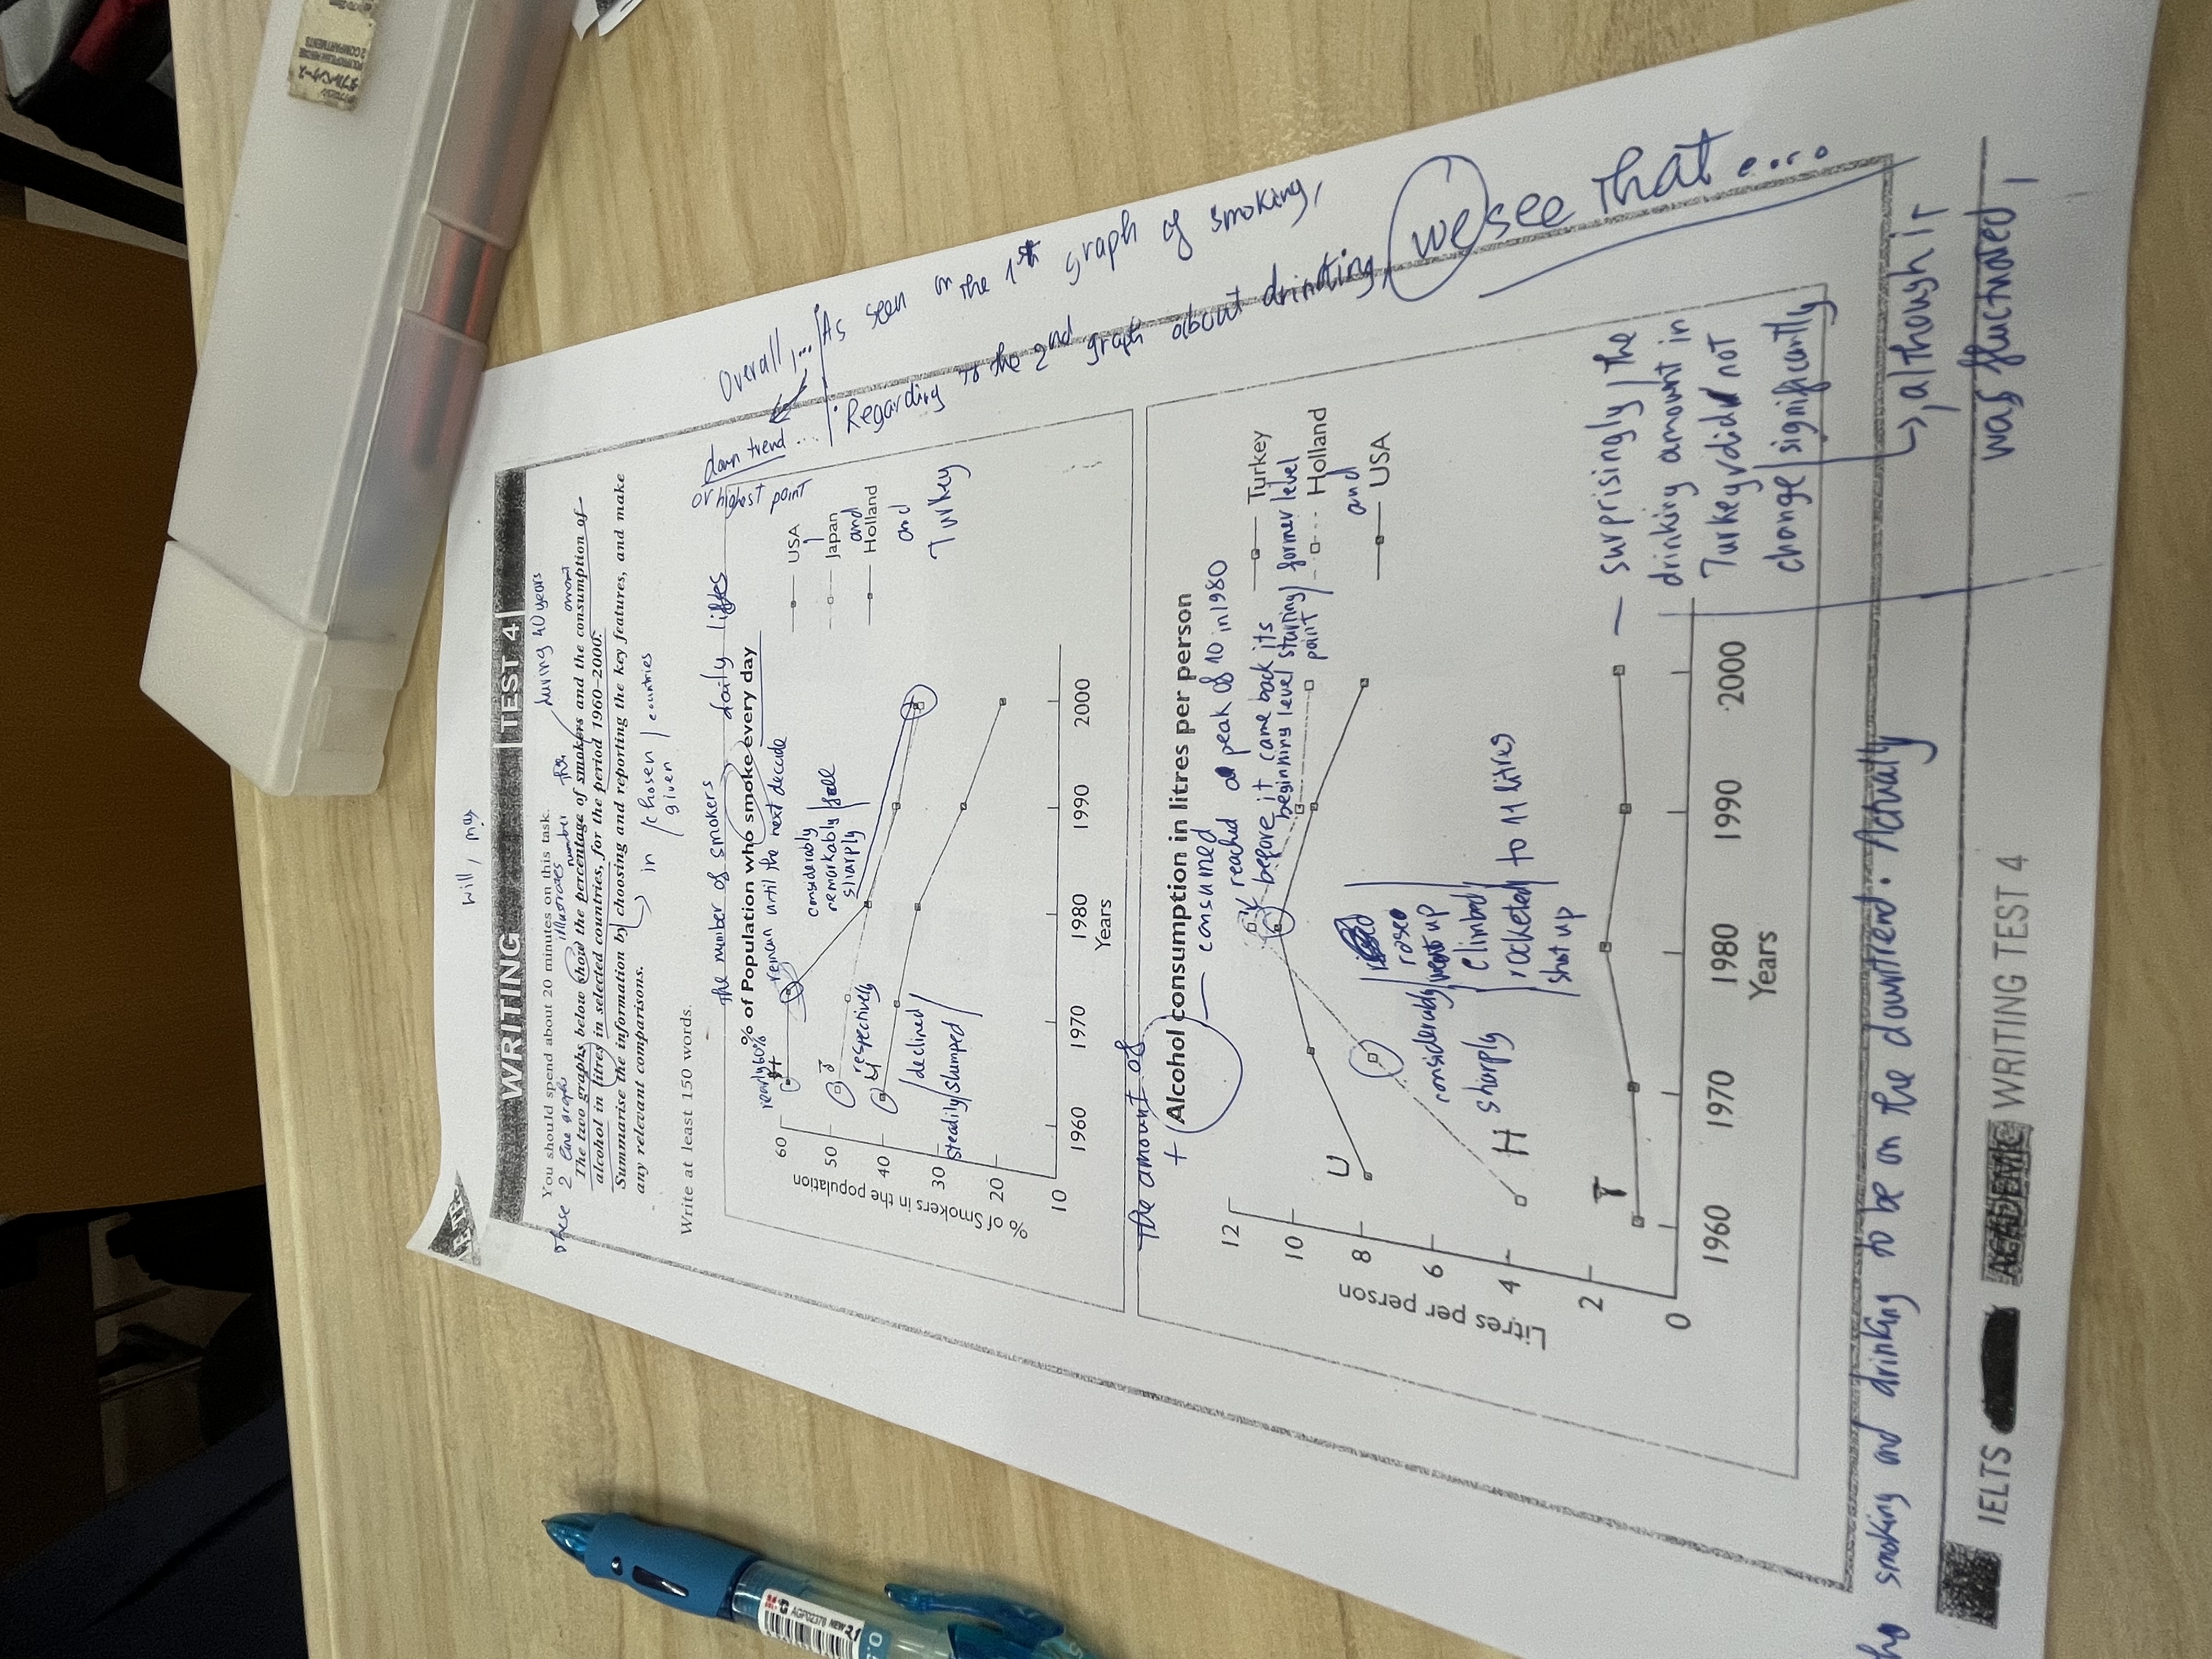 LE TES
will, may
WRITING TEST 4
You should spend about 20 minutes on this task.
during 40 years
These 2 line graphs illustrates number the amount
The two graphs below show the percentage of smokers and the consumption of
alcohol in litres in selected countries, for the period 1960–2000.
Summarise the information by choosing and reporting the key features, and make
any relevant comparisons.
in chosen / given countries
Write at least 150 words.
The number of smokers daily lifes
% of Population who smoke every day
nearly 60%
remain until the next decade
60
50
40
30
20
10
% of Smokers in the population
considerably
remarkably fell
sharply
respectively
declined
steadily slumped
USA
Japan
and
Holland
and
Turkey
1960 1970 1980 1990 2000
Years
down trend...
or highest point
Overall, ... As seen in the 1st graph of smoking,
Regarding to the 2nd graph about drinking, we see that ....
The amount of
+ Alcohol consumption in litres per person
consumed
reached a peak of 10 in 1980
before it came back its
beginning level starting point / former level
12
10
8
6
4
2
0
Litres per person
Turkey
Holland
and
USA
U
H
T
considerably
sharply
rose
went up
climbed
rocketed to 11 litres
shot up
1960 1970 1980 1990 2000
Years
surprisingly, the
drinking amount in
Turkey did not
change significantly
, although it
was fluctuated,
smoking and drinking to be on the downtrend. Actually
IELTS ACADEMIC WRITING TEST 4
ダブルペンケース
2 COMPARTMENTS
0.5